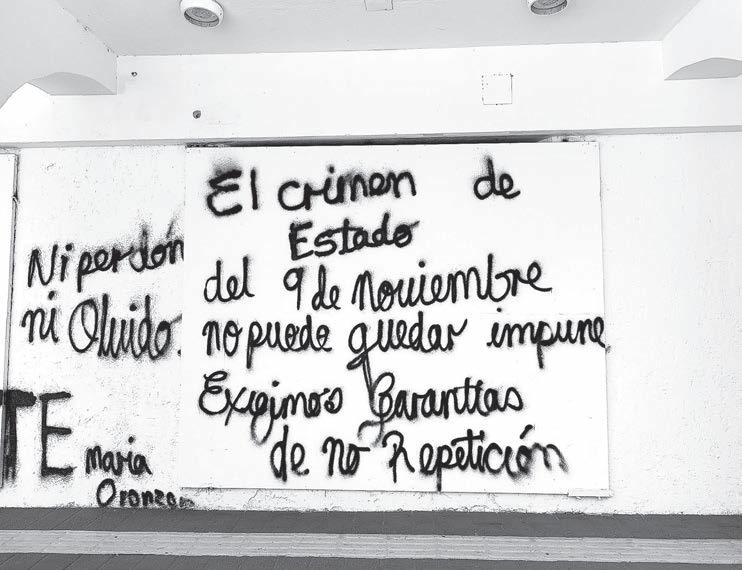 Ni perdón
ni Olvido.
TE
maria
El crimen de
Estado
del 9 de Noviembre
no puede quedar impune
Exigimos Garantías
de no Repetición